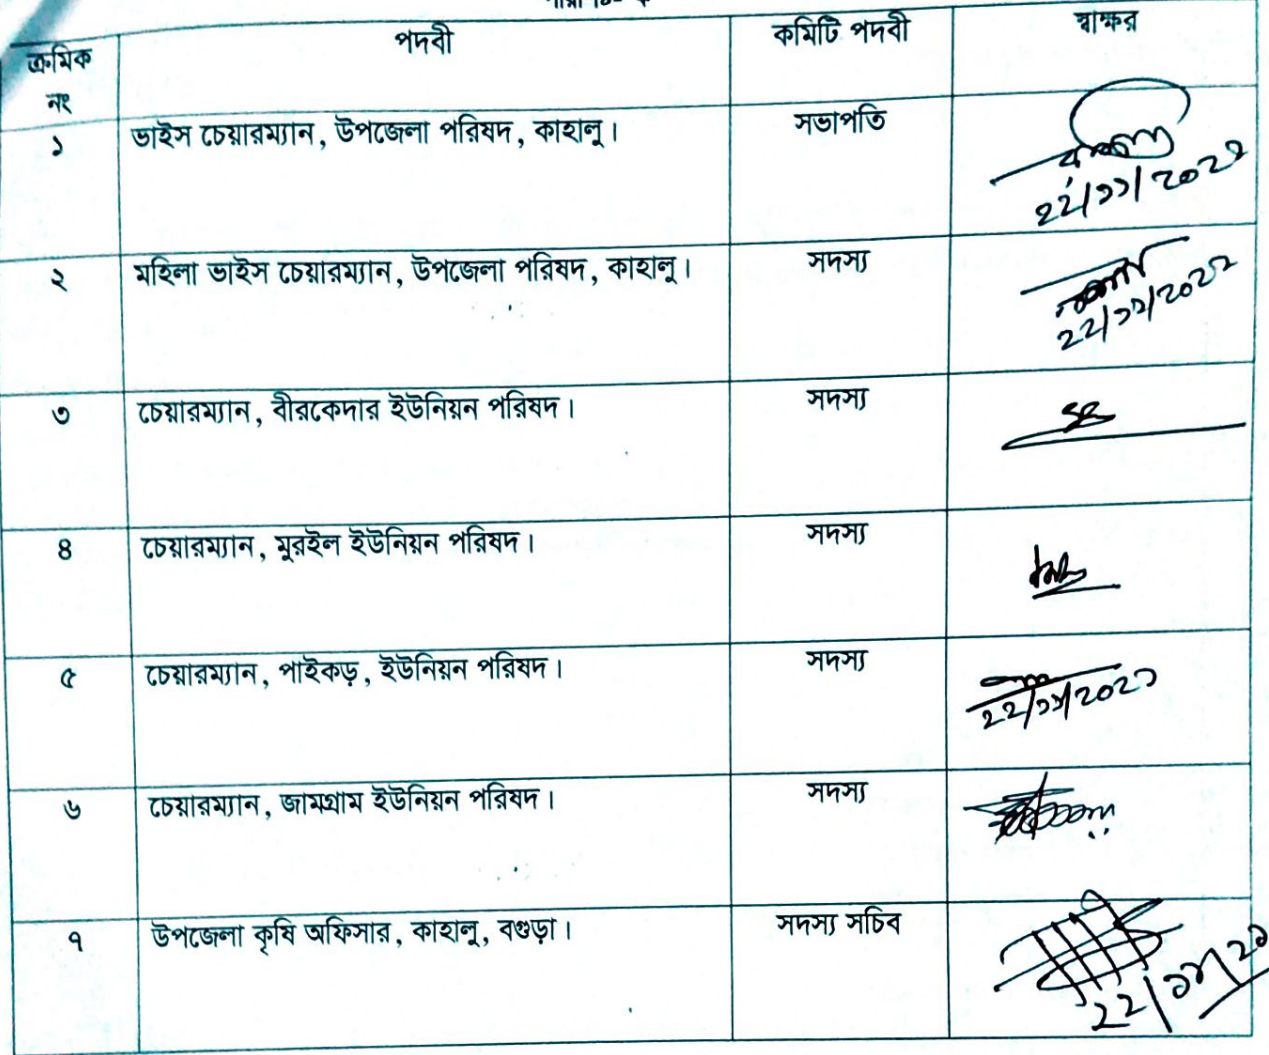 ক্রমিক নং পদবী কমিটি পদবী স্বাক্ষর
১ ভাইস চেয়ারম্যান, উপজেলা পরিষদ, কাহালু। সভাপতি
২২/১১/২০২২
২ মহিলা ভাইস চেয়ারম্যান, উপজেলা পরিষদ, কাহালু। সদস্য
২২/১১/২০২২
৩ চেয়ারম্যান, বীরকেদার ইউনিয়ন পরিষদ। সদস্য
৪ চেয়ারম্যান, মুরইল ইউনিয়ন পরিষদ। সদস্য
৫ চেয়ারম্যান, পাইকড়, ইউনিয়ন পরিষদ। সদস্য
৬ চেয়ারম্যান, জামগ্রাম ইউনিয়ন পরিষদ। সদস্য
৭ উপজেলা কৃষি অফিসার, কাহালু, বগুড়া। সদস্য সচিব